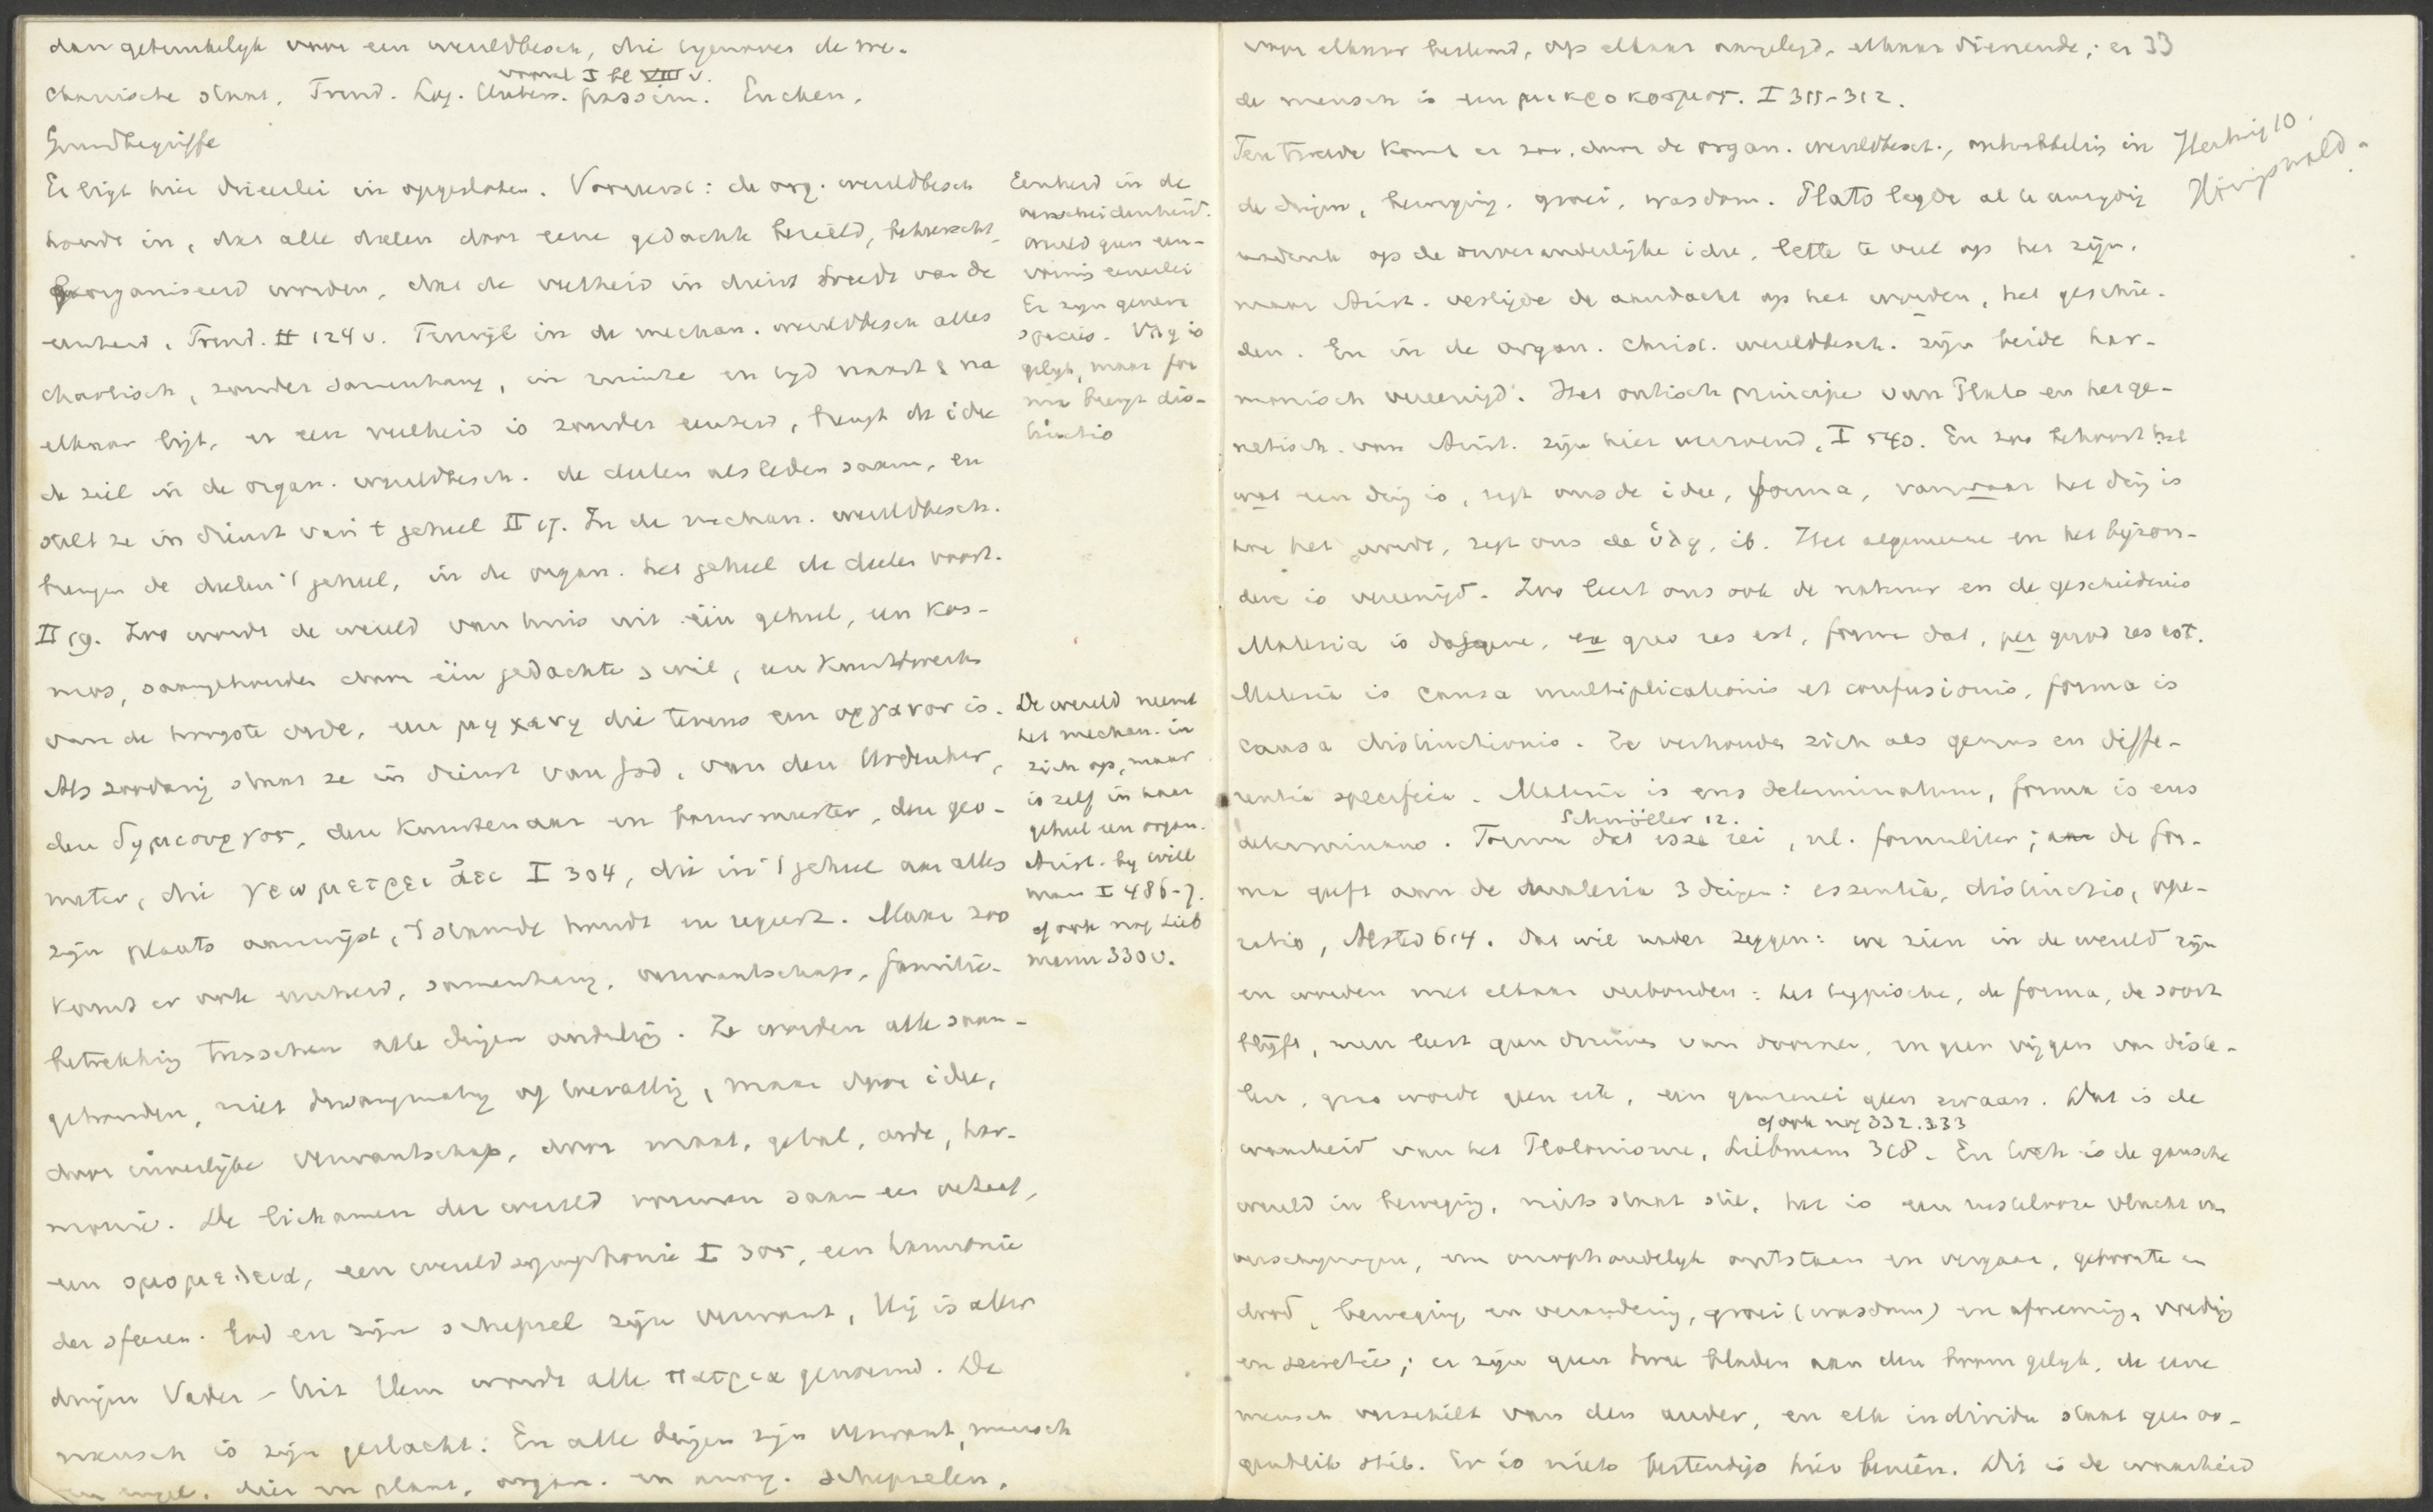 dan gebruikelyk voor een wereldbesch, die tegenover de me-
chanische staat, Trend. Log. Unters. passim. Eucken,
vooral I bl VIII v.
Grundbegriffe
Er ligt hier drieerlei in opgesloten. Vooreerst: de org. wereldbesch
houdt in, dat alle deelen door eene gedachte bezield, beheerscht,
georganiseerd worden, dat de veelheid in dienst treedt van de
eenheid, Trend. II 124 v. Terwijl in de mechan. wereldbesch alles
chaotisch, zonder samenhang, in ruimte en tyd naast & na
elkaar ligt, er een veelheid is zonder eenheid, brengt de idee
de ziel in de organ. wereldbesch. de deelen als leden saam, en
stelt ze in dienst van 't geheel II 17. In de mechan. wereldbesch.
brengen de deelen 't geheel, in de organ. het geheel de deelen voort.
II 19. Zoo wordt de wereld van huis uit één geheel, een kos-
mos, saamgehouden door één gedachte & wil, een kunstwerk
van de hoogste orde, een μηχανη die tevens een οργανον is.
Als zoodanig staat ze in dienst van God, van den Urdenker,
den δημιουργος, den kunstenaar en bouwmeester, den geo-
meter, die γεωμετρει ἀει I 304, die in 't geheel aan alles
zyn plaats aanwijst, 't staande houdt en regeert. Maar zoo
komt er ook eenheid, samenhang, verwantschap, familie-
betrekking tusschen alle dingen onderling. Ze worden alle saam-
gehouden, niet dwangmatig of toevallig, maar door idee,
door innerlijke verwantschap, door maat, getal, orde, har-
monie. De lichamen der wereld vormen saam een
een ομομελεια, een wereldsymphonie I 305, een harmonie
der sferen. God en zijn schepsel zijn verwant, Hij is aller
dingen Vader - Uit Hem wordt alle πατρια genoemd. De
mensch is zijn geslacht. En alle dingen zijn verwant, mensch
en engel, dier en plant, organ. en anorg. schepselen,
Eenheid in de
verscheidenheid.
wereld geen een-
vormig eenerlei
Er zyn genera
species. ὑλη is
gelyk, maar for
ma brengt dis-
tinctio
De wereld neemt
het mechan. in
zich op, maar
is zelf in haar
geheel een organ.
Arist. by Will
man I 486-7.
cf ook nog Lieb
mann 330 v.
voor elkaar bestemd, op elkaar aangelegd, elkaar dienende; er 33
de mensch is een μικροκοσμος. I 311-312.
Ten tweede komt er zoo, door de organ. wereldbesch., ontwikkeling in
de dingen, beweging, groei, wasdom. Plato legde al te eenzydig
nadruk op de onveranderlijke idee, lette te veel op het zijn.
maar Arist. vestigde de aandacht op het worden, het geschie-
den. En in de organ. christ. wereldbesch. zijn beide har-
monisch vereenigd. Het ontisch principe van Plato en het ge-
netisch. van Arist. zijn hier verzoend, I 540. En zoo behoort het
wat een ding is, zegt ons de idee, forma, van waar het ding is
hoe het wordt, zegt ons de ὑλη, ib. Het algemeene en het byzon-
dere is vereenigd. Zoo leert ons ook de natuur en de geschiedenis
Materia is datgene, ex quo res est, forma dat, per quod res est.
Materia is causa multiplicationis et confusionis, forma is
causa distinctionis. Ze verhouden zich als genus en diffe-
rentia specifica. Materia is ens determinatum, forma is ens
determinans. Forma dat esse rei, nl. formaliter; de for-
Schmöller 12.
ma geeft aan de materia 3 dingen: essentia, distinctio, ope-
ratio, Alsted 614. Dat wil nader zeggen: we zien in de wereld zijn
en worden met elkaar verbonden: het typische, de forma, de soort
blijft, men leest geen druiven van doornen, en geen vijgen van diste-
len, gras wordt geen eik, een ganzenei geen zwaan. Dat is de
waarheid van het Platonisme, Liebmann 318. En toch is de gansche
cf ook nog 332.333
wereld in beweging, niets staat stil, het is een rustelooze vlucht van
verschijningen, een onophoudelyk ontstaan en vergaan, geboorte en
dood, beweging en verandering, groei (wasdom) en afneming, voeding
en secretie; er zijn geen twee bladen aan den boom gelyk, de eene
mensch verschilt van den ander, en elk individu staat geen oo-
genblik stil. Er is niets bestendigs hier beneên. Dit is de waarheid
Hertwig 10.
Hönigswald.